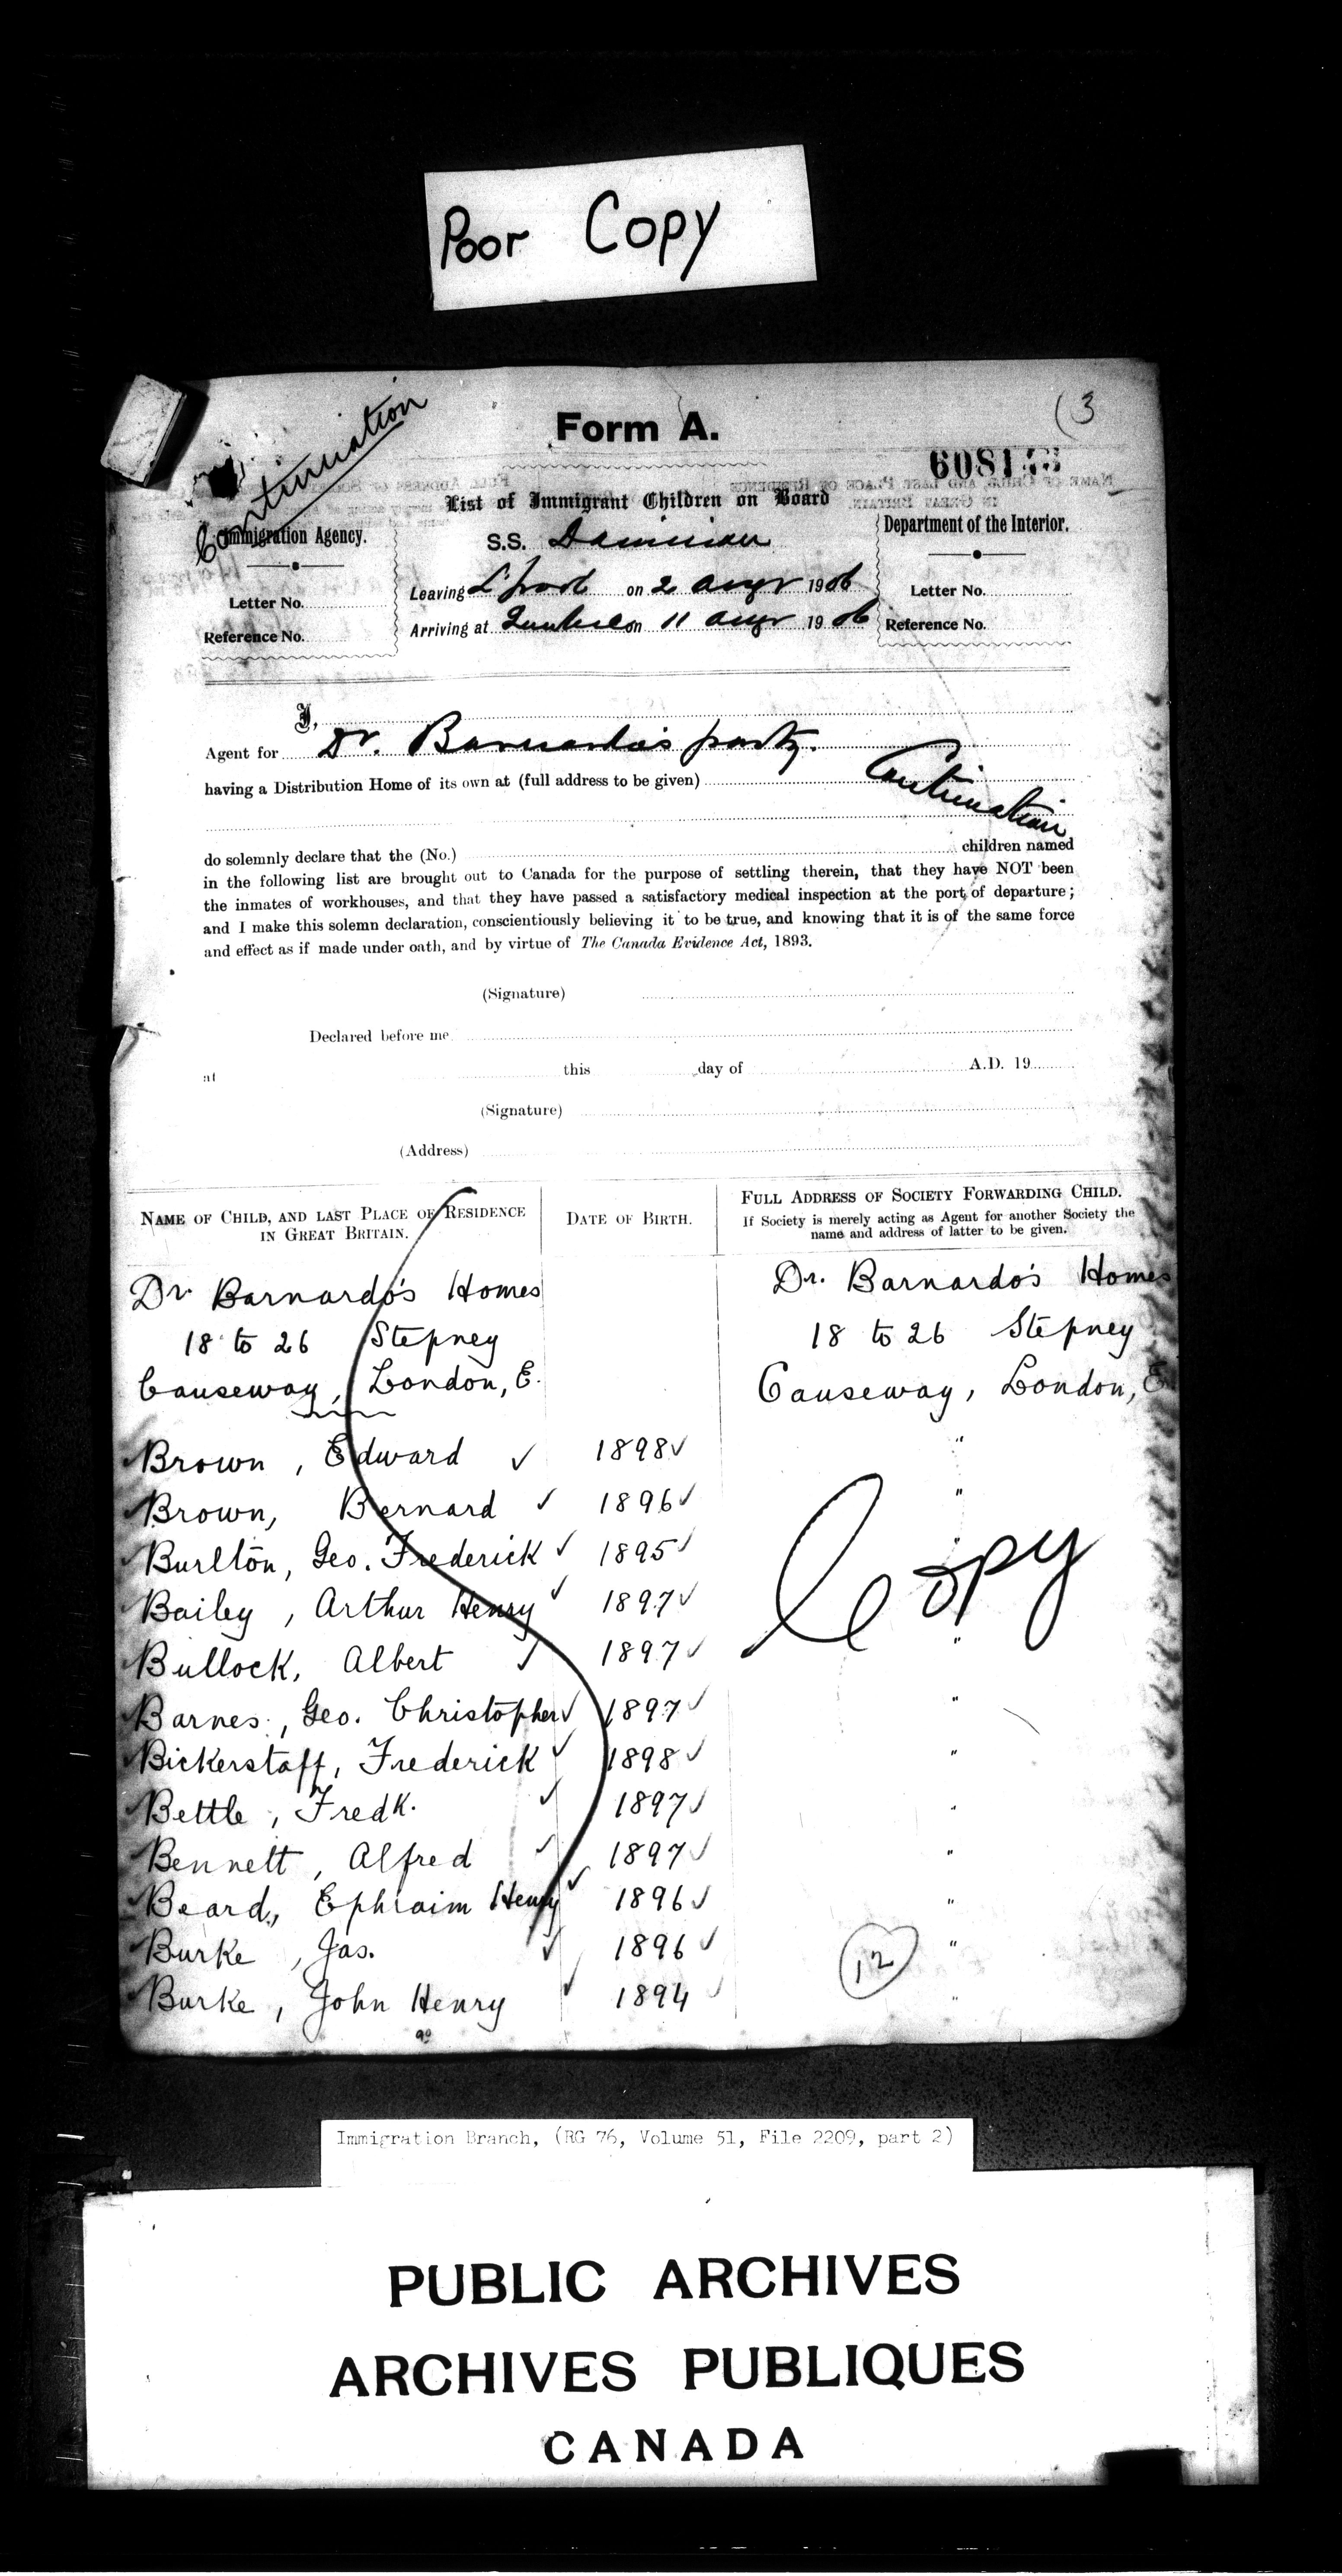 Poor Copy
(3
Form A.
Continuation
6081
List of Immigrant Children on Board
Immigration Agency.
Department of the Interior.
S.S. Dominion
Letter No.
Leaving L'pool on 2 augr 1906
Letter No.
Reference No.
Arriving at Quebec on 11 augr 1906
Reference No.
I,
Agent for Dr. Barnardo's party.
having a Distribution Home of its own at (full address to be given)
Continuation
do solemnly declare that the (No.) children named
in the following list are brought out to Canada for the purpose of settling therein, that they have NOT been
the inmates of workhouses, and that they have passed a satisfactory medical inspection at the port of departure;
and I make this solemn declaration, conscientiously believing it to be true, and knowing that it is of the same force
and effect as if made under oath, and by virtue of The Canada Evidence Act, 1893.
(Signature)
Declared before me
at this day of A.D. 19
(Signature)
(Address)
NAME OF CHILD, AND LAST PLACE OF RESIDENCE
IN GREAT BRITAIN.
DATE OF BIRTH.
FULL ADDRESS OF SOCIETY FORWARDING CHILD.
If Society is merely acting as Agent for another Society the
name and address of latter to be given.
Dr. Barnardo's Homes Dr. Barnardo's Homes
18 to 26 Stepney 18 to 26 Stepney
Causeway, London, E. Causeway, London, E
Brown, Edward ✓ 1898 ✓ "
Brown, Bernard ✓ 1896 ✓ "
Copy
Burlton, Geo. Frederick ✓ 1895 ✓
Bailey, Arthur Henry ✓ 1897 ✓
Bullock, Albert ✓ 1897 ✓ "
Barnes, Geo. Christopher ✓ 1897 ✓ "
Bickerstaff, Frederick ✓ 1898 ✓ "
Bettle, Fredk. ✓ 1897 ✓ "
Bennett, Alfred ✓ 1897 ✓ "
Beard, Ephraim Henry ✓ 1896 ✓ "
Burke, Jas. ✓ 1896 ✓ "
12
Burke, John Henry ✓ 1894 ✓ "
Immigration Branch, (RG 76, Volume 51, File 2209, part 2)
PUBLIC ARCHIVES
ARCHIVES PUBLIQUES
CANADA